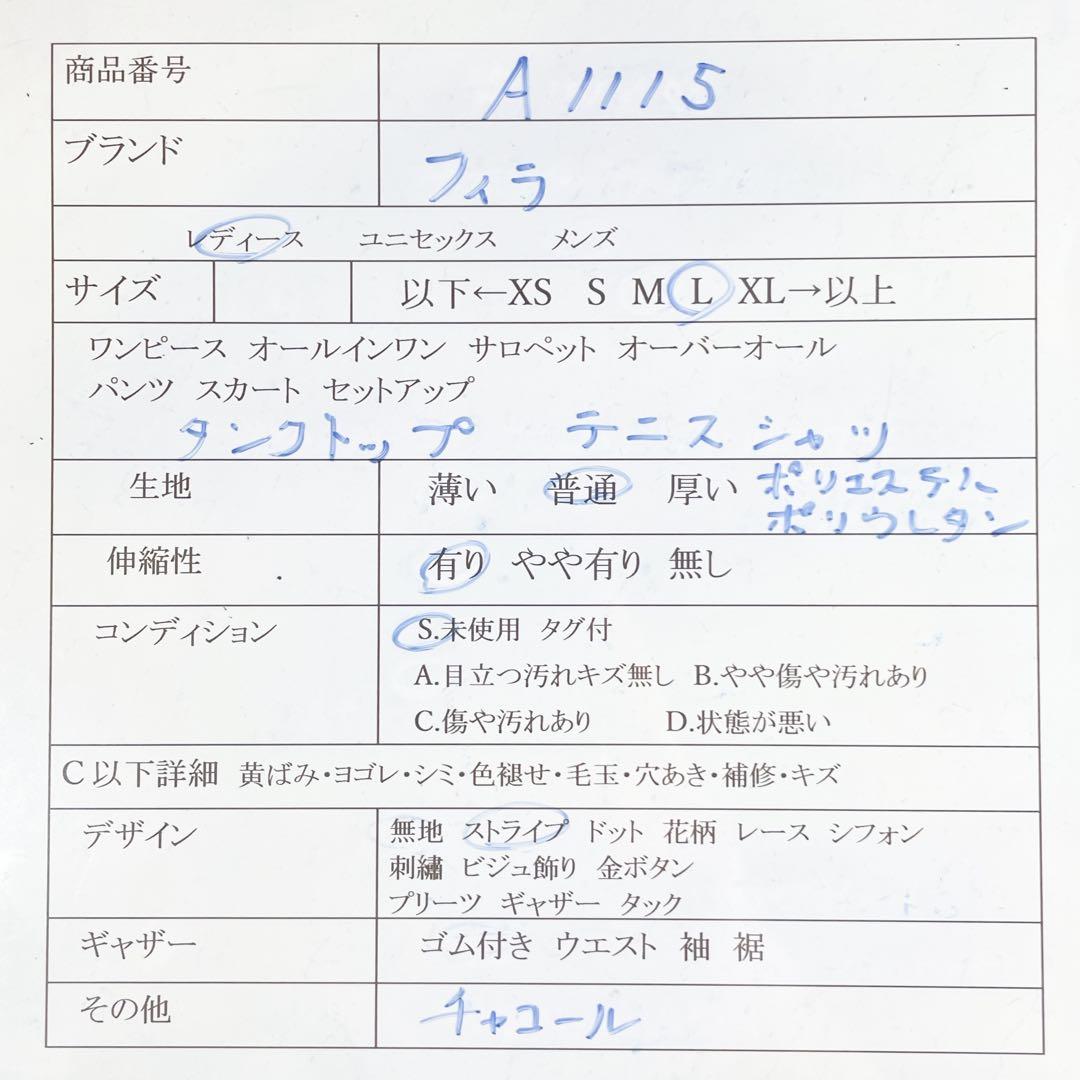 商品番号 A1115
ブランド フィラ
レディース ユニセックス メンズ
サイズ 以下←XS S M L XL→以上
ワンピース オールインワン サロペット オーバーオール
パンツ スカート セットアップ
タンクトップ テニスシャツ
生地 薄い 普通 厚い ポリエステル
ポリウレタン
伸縮性 有り やや有り 無し
コンディション S.未使用 タグ付
A.目立つ汚れキズ無し B.やや傷や汚れあり
C.傷や汚れあり D.状態が悪い
C以下詳細 黄ばみ・ヨゴレ・シミ・色褪せ・毛玉・穴あき・補修・キズ
デザイン 無地 ストライプ ドット 花柄 レース シフォン
刺繡 ビジュ飾り 金ボタン
プリーツ ギャザー タック
ギャザー ゴム付き ウエスト 袖 裾
その他 チャコール